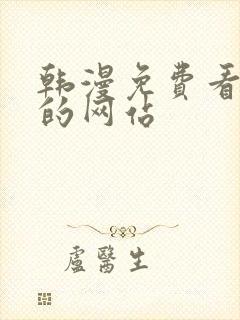 韩漫免费看
的网站
盧醫生